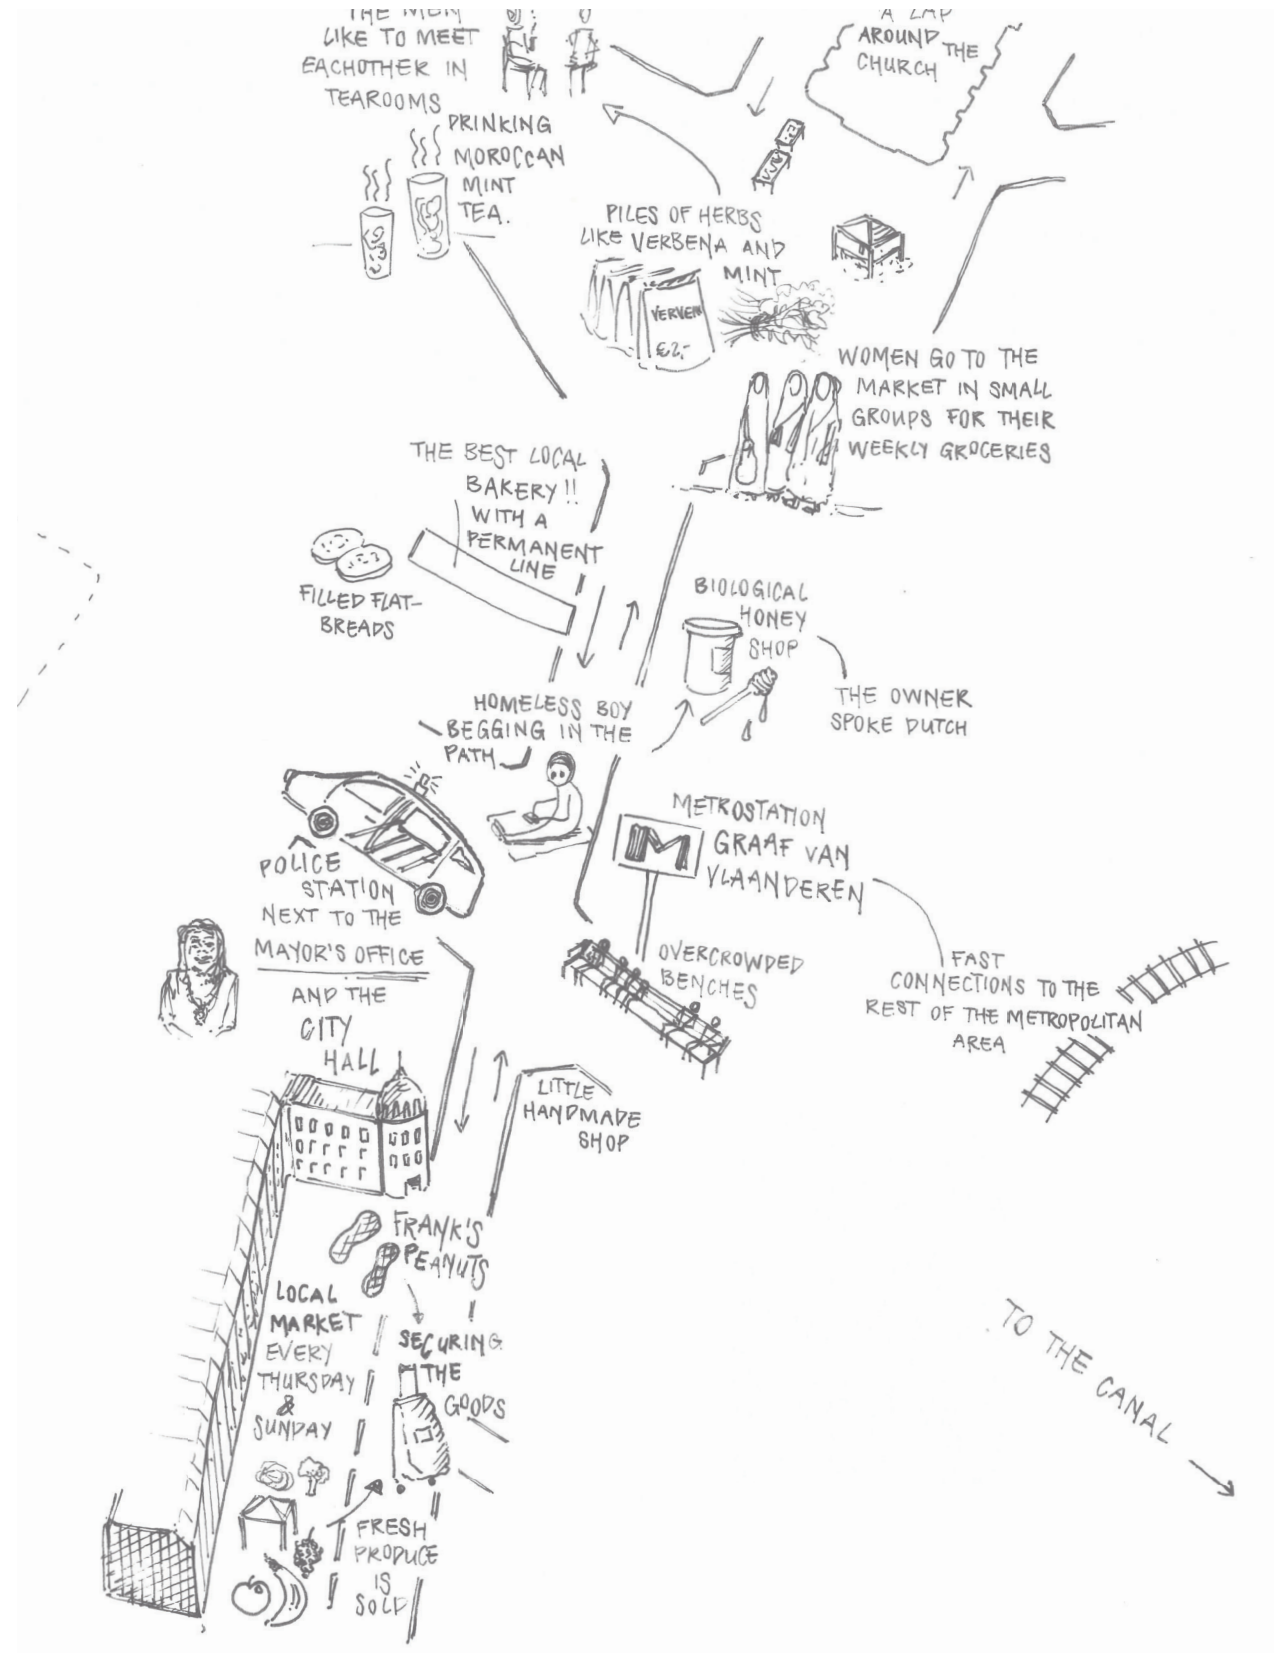 THE MEN
LIKE TO MEET
EACHOTHER IN
TEAROOMS
DRINKING
MOROCCAN
MINT
TEA.
A LAP
AROUND THE
CHURCH
PILES OF HERBS
LIKE VERBENA AND
MINT
VERVEIN
€2,-
WOMEN GO TO THE
MARKET IN SMALL
GROUPS FOR THEIR
WEEKLY GROCERIES
THE BEST LOCAL
BAKERY!!
WITH A
PERMANENT
LINE
FILLED FLAT-
BREADS
BIOLOGICAL
HONEY
SHOP
THE OWNER
SPOKE DUTCH
HOMELESS BOY
BEGGING IN THE
PATH
METROSTATION
GRAAF VAN
VLAANDEREN
M
POLICE
STATION
NEXT TO THE
MAYOR'S OFFICE
AND THE
CITY
HALL
OVERCROWDED
BENCHES
FAST
CONNECTIONS TO THE
REST OF THE METROPOLITAN
AREA
LITTLE
HANDMADE
SHOP
FRANK'S
PEANUTS
LOCAL
MARKET
EVERY
THURSDAY
&
SUNDAY
SECURING
THE
GOODS
FRESH
PRODUCE
IS
SOLD
TO THE CANAL